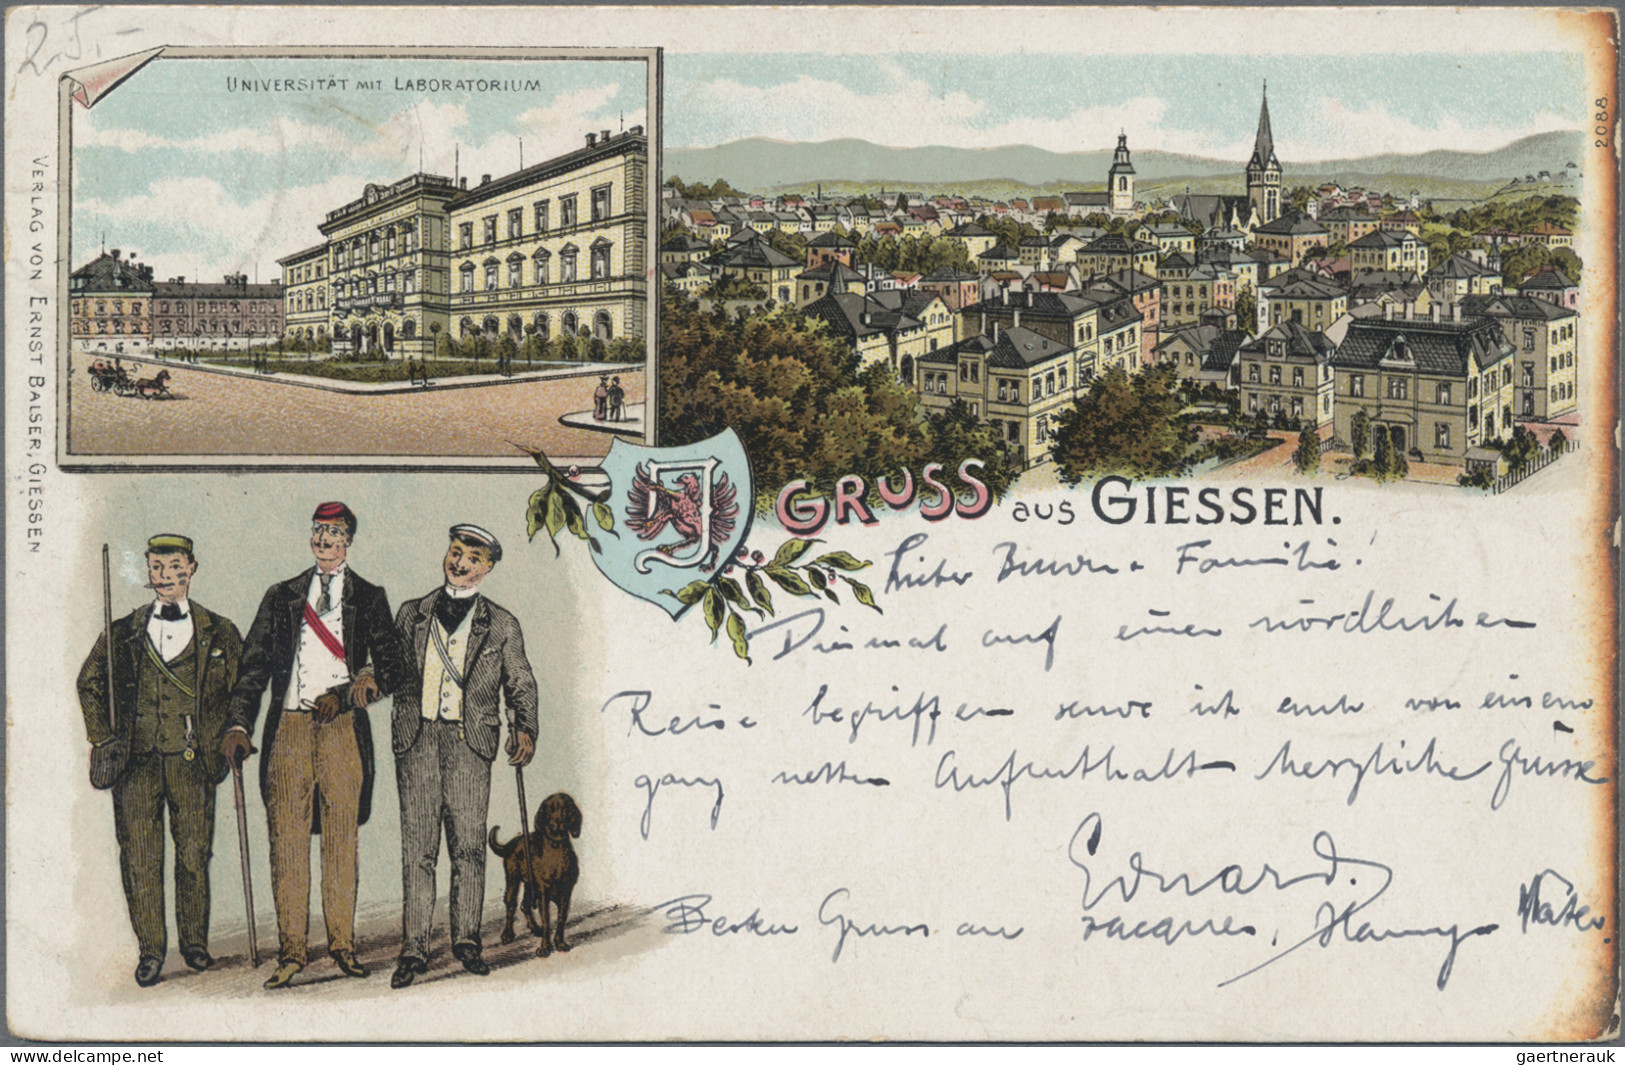 25,-
UNIVERSITÄT MIT LABORATORIUM
2088
VERLAG VON ERNST BALSER, GIESSEN
GRUSS aus GIESSEN.
Lieber Bruder & Familie!
Diesmal auf einer nördlichen
Reise begriffen sende ich euch von einem
ganz netten Aufenthalt herzliche Grüsse
Eduard.
Besten Gruss an Jacques, Hanny
delcampe.net
gaertnerauk